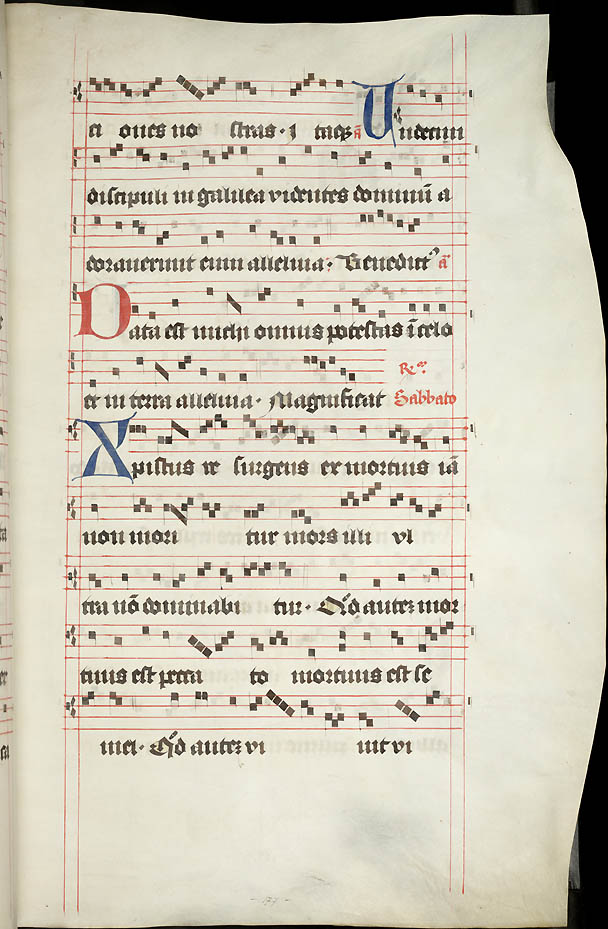 ci ones no stras · i taqꝫ a͞ Undecim
discipuli in galilea videntes dominū a
dorauerunt eum alleluia · Benedict⁹ a͞
Data est michi omnis potestas ī celo
et in terra alleluia · Magnificat Sabbato
Xpistus re surgens ex mortuis iā
non mori tur mors illi vl
tra nō dominabi tur · Qd autez mor
tuus est pecca to mortuus est se
mel · Qd autez vi uit vi